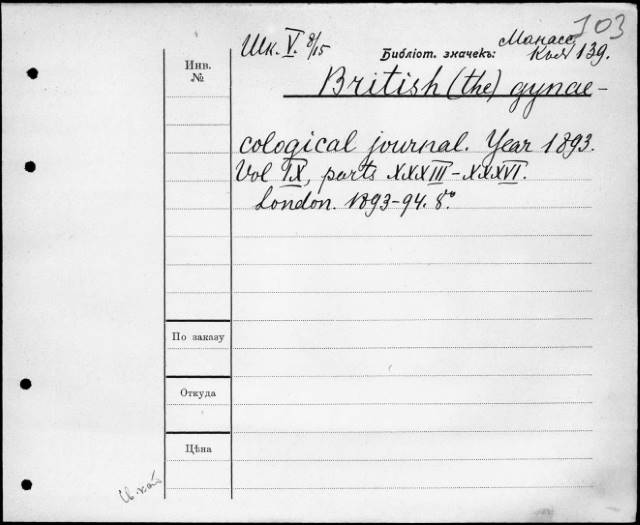 103
Шк. V. 8/15
Библіот. значекъ: Манасс.
139.
Инв.
№
British (the) gynae-
cological journal. Year 1893.
Vol IX, parts XXXIII-XXXVI.
London. 1893-94. 8°.
По заказу
Откуда
Цѣна